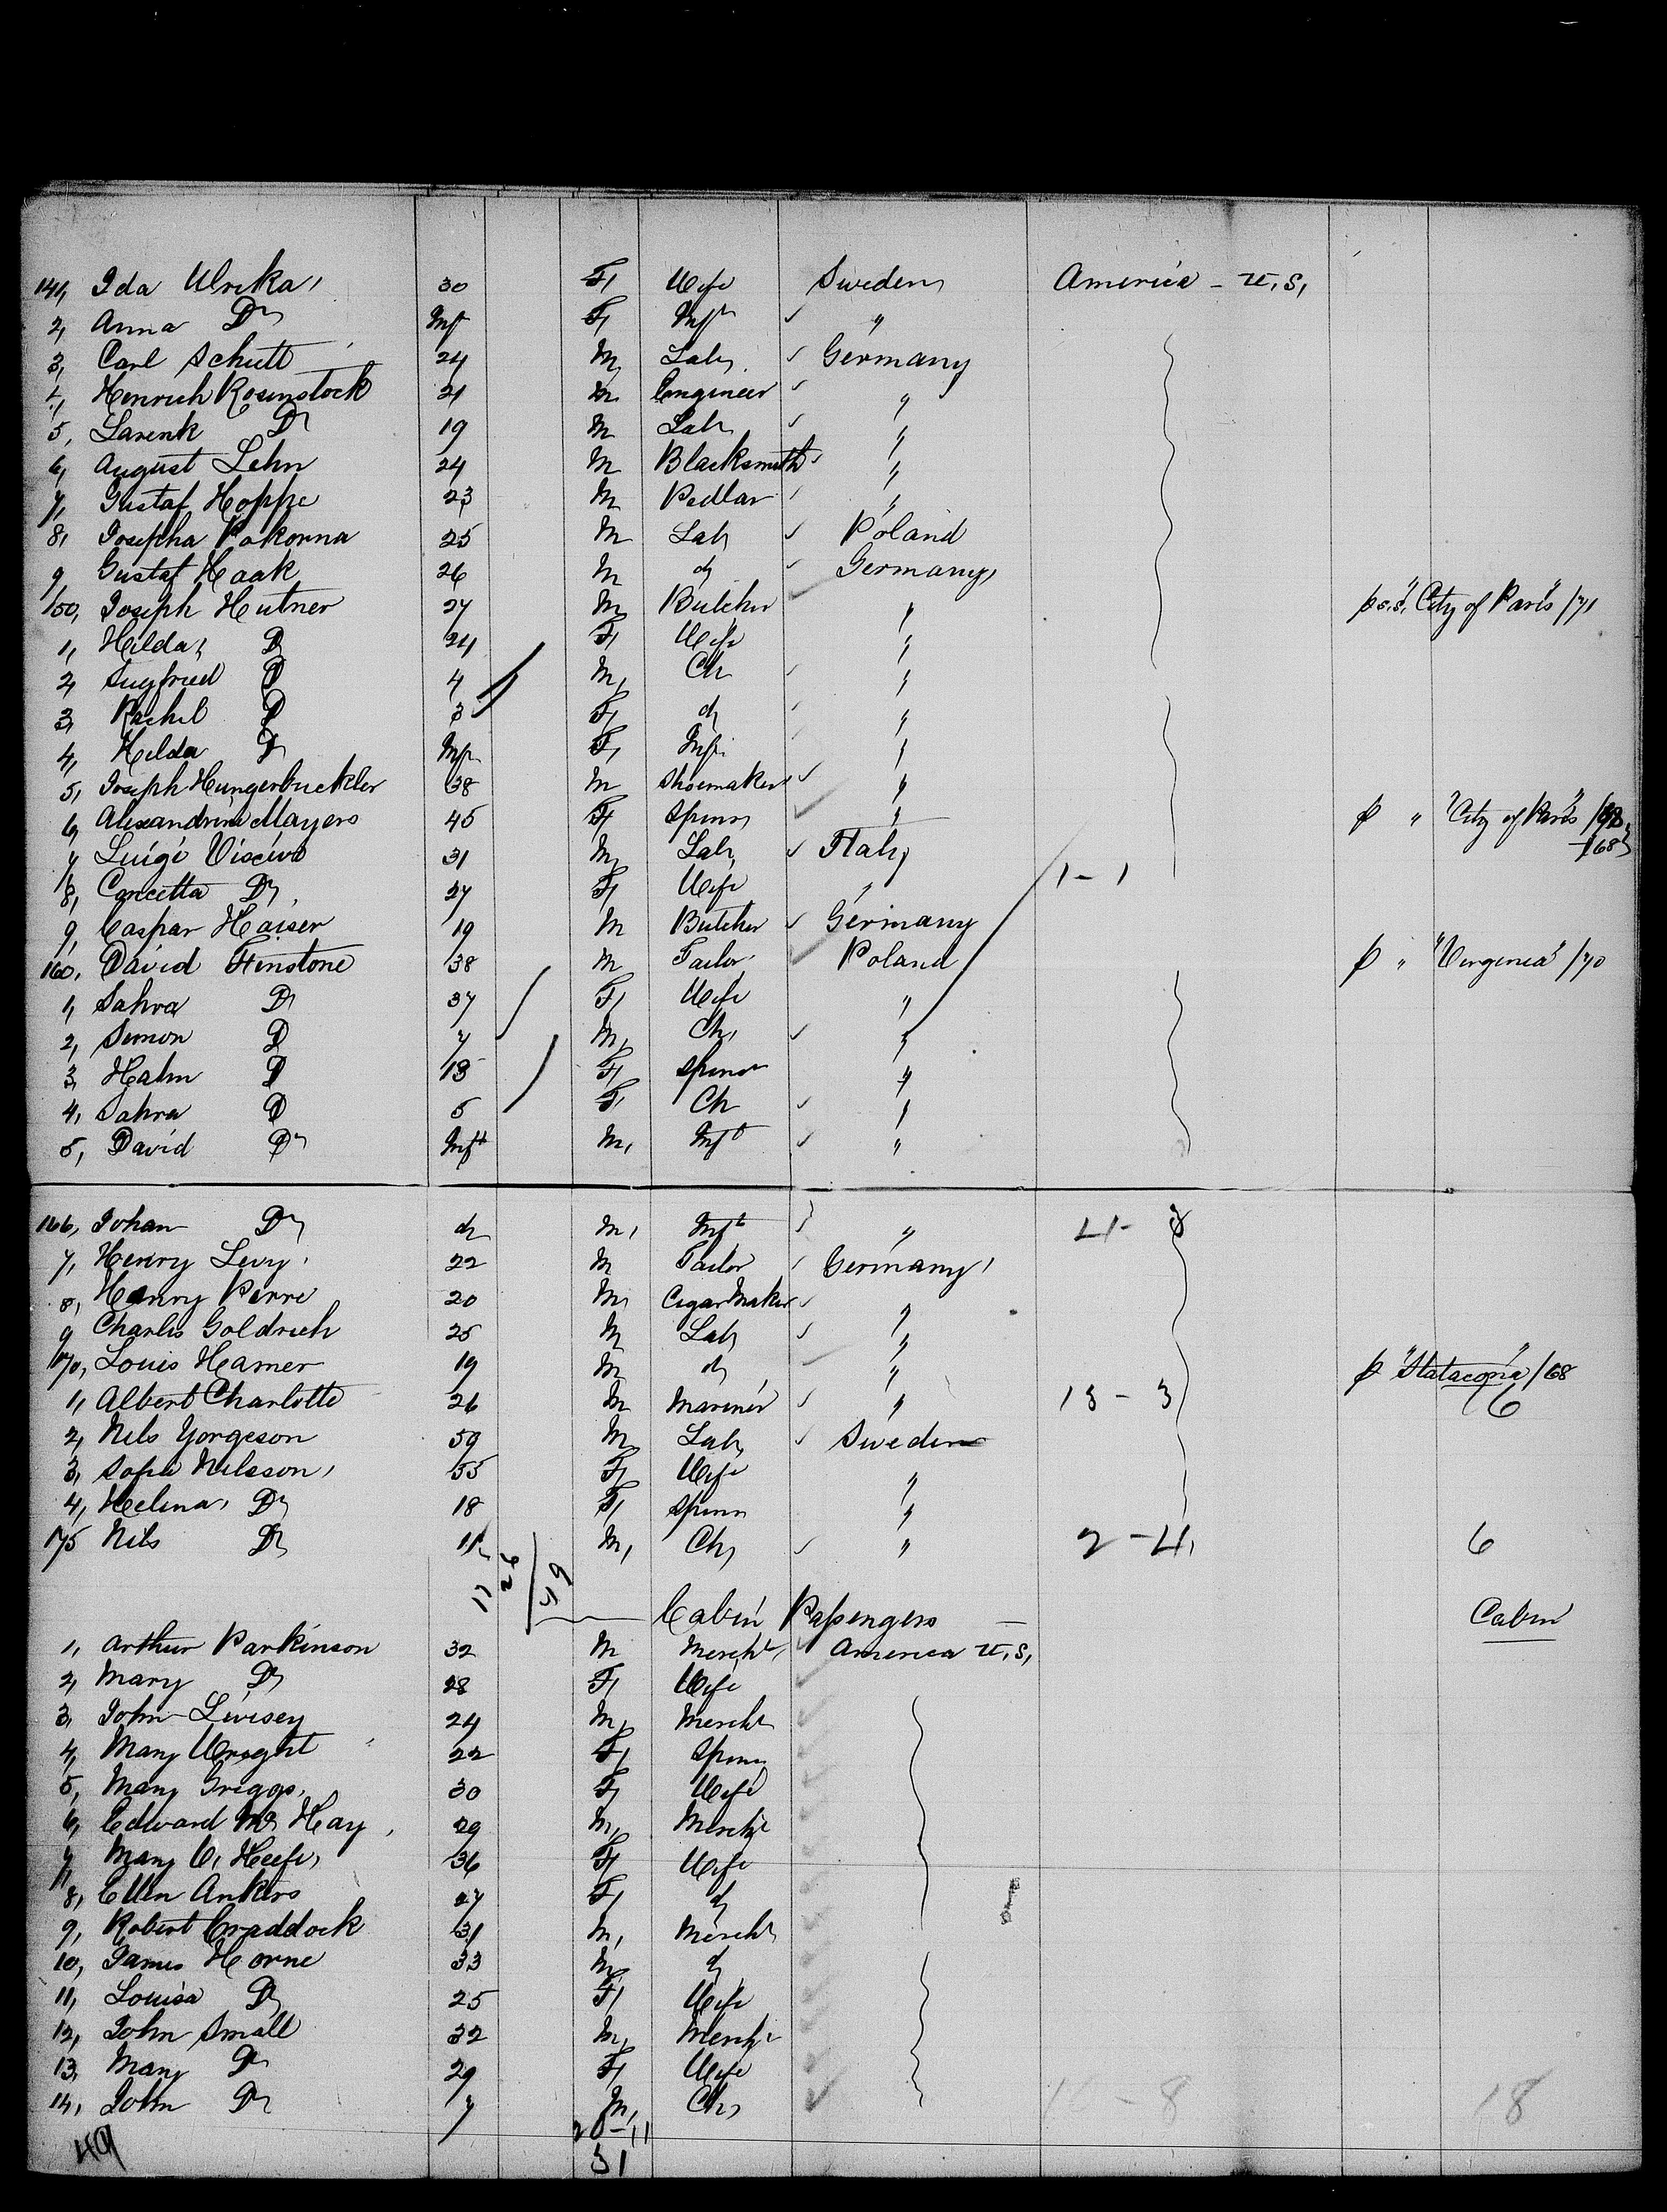 141, Ida Ulrika, 30 F, Wife Sweden, America - U, S,
2, Anna Do Inft F, Inft "
3, Carl Schutt 24 M, Lab, Germany
4, Henrich Rosenstock 21 M. Engineer "
5, Larenk Do 19 M Lab, "
6, August Lehn 24 M Blacksmith "
7, Gustaf Hoppe 23 M Pedlar "
8, Josepha Pokorna 25 M Lab, Poland
9 Gustaf Haak 26 M do Germany,
150, Joseph Hutner 27 M, Butcher " p s.s. "City of Paris" /71
1, Hilda, Do 24 F, Wife "
2, Sugfried Do 4 M, Ch "
3, Rachel Do 3 F, do "
4, Hilda Do Inft F, Inft "
5, Joseph Hungerbuckler 38 M Shoemaker "
6, Alexandrine Mayers 45 F, Spinr "
p " "City of Paris" /68
7 Luigi 31 M, Lab, Italy
8, Concetta Do, 27 F, Wife " 1 - 1
9, Caspar Kaiser 19 M Butcher Germany
160, David Finstone 38 M Tailor Poland p " "Virginia" /70
1, Sahra Do 37 F, Wife "
2, Simon Do 7 M, Ch, "
3, Halm Do 13 F, Spinr "
4, Sahra Do 5 F, Ch "
5, David Do Inft M, Inft "
166, Johan Do do M, Inft " 4 - 8
7, Henry Levy, 22 M Tailor Germany,
8, Henry Perre 20 M, Cigar Maker "
9 Charles Goldrich 25 M Lab, "
170, Louis Hamer 19 M do "
1, Albert Charlotte 26 M Mariner " 13 - 3 6
2, Nils Yorgeson 59 M, Lab, Sweden
3, Sofia Nilsson, 55 F, Wife "
4, Helena, Do 18 F, Spinr "
175 Nils Do 11 M, Ch, " 2 - 4, 6
Cabin Passengers — Cabin
1, Arthur Parkinson 32 M Mercht, America U, S,
2, Mary Do 28 F, Wife
3, John Livesey 24 M, Mercht
4, Mary Wright 22 F, Spinr
5, Mary Griggs, 30 F, Wife
6, Edward Mc Hay, 29 M, Mercht
7 Mary 36 F, Wife
8, Ellen Ankers 27 F, do
9, Robert Craddock 31 M, Mercht
10, James Horne 33 M, do
11, Louisa Do 25 F, Wife
12, John Small 32 M, Mercht
13, Mary Do 29 F, Wife
14, John Do 7 M, Ch, - 8 18
49 20 - 11
31